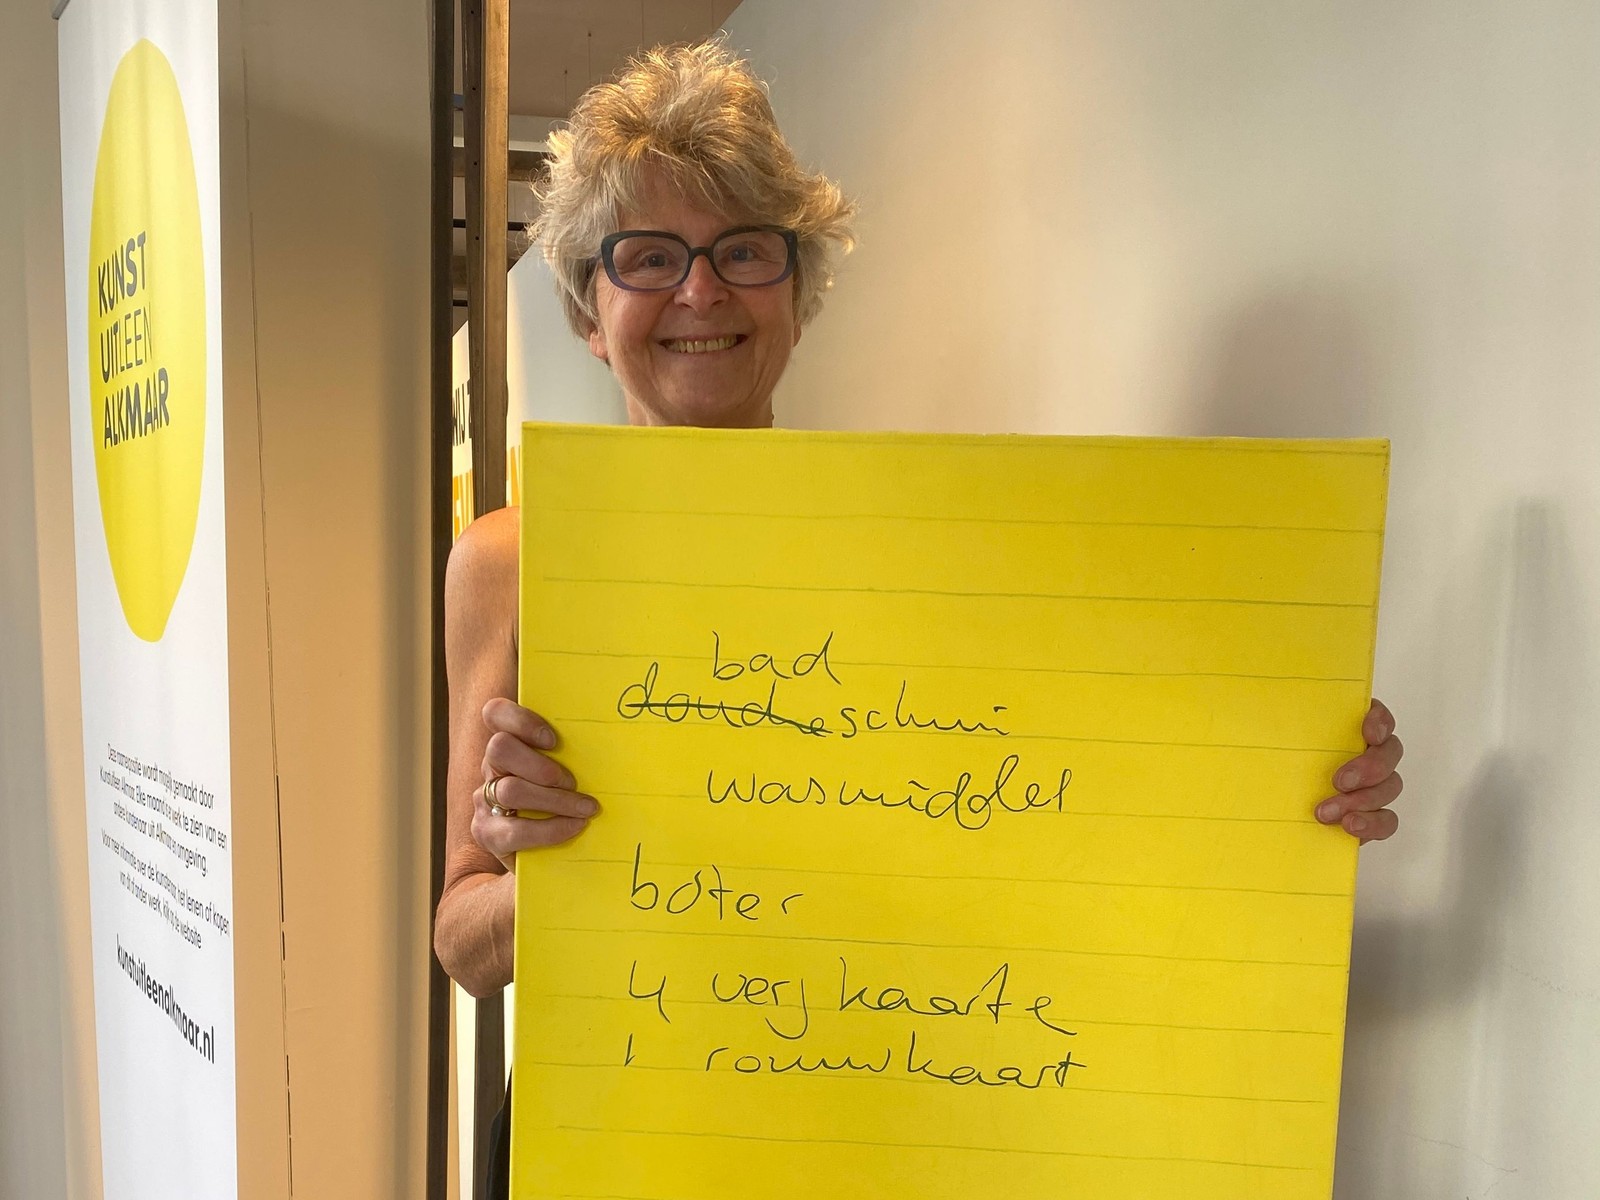 KUNST
UITLEEN
ALKMAAR
Deze mamexpositie wordt mogelijk gemaakt door
Kunstuitleen Alkmaar. Elke maand is werk te zien van een
andere kunstenaar uit Alkmaar en omgeving.
Voor meer informatie over de kunstenaar, het lenen of kopen
van dit of ander werk, kijk op de website
kunstuitleenalkmaar.nl
WIJ Z
bad
doucheschui
wasmiddel
boter
4 verj kaarte
1 rouwkaart